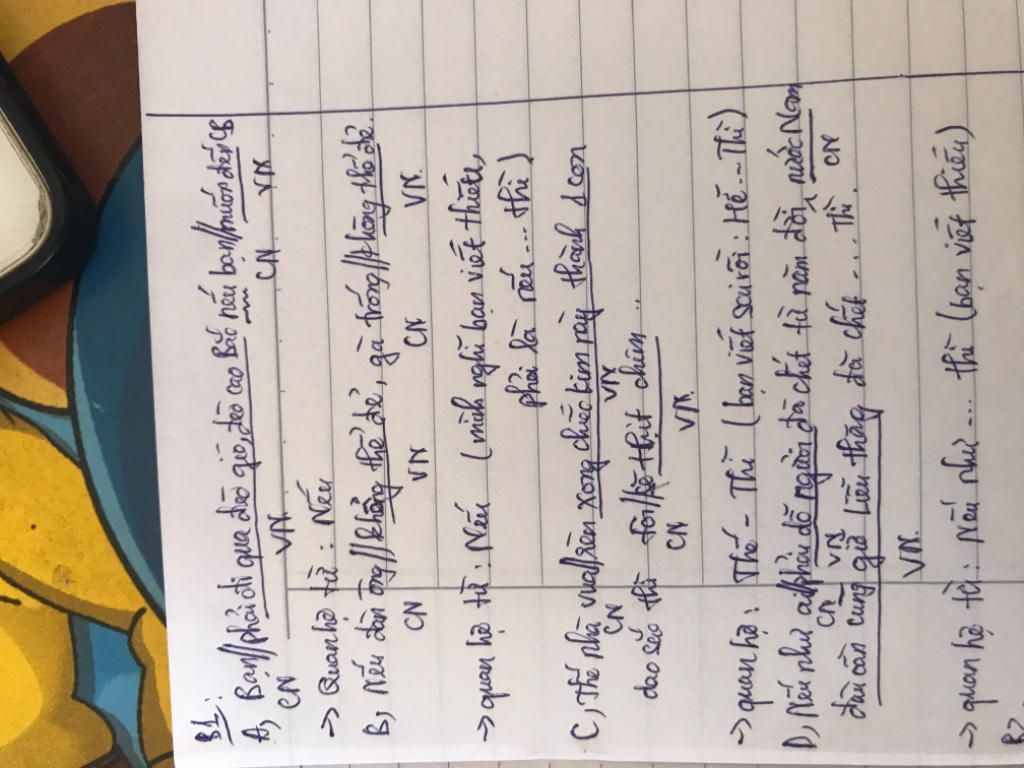 B1:
A, Bạn//phải đi qua đèo gió, đèo cao Bắc nếu bạn//muốn đến CB
CN VN CN VN
→ Quan hệ từ: Nếu
B, Nếu đàn ông//không thể đẻ, gà trống//không thể đẻ.
CN VN CN VN.
→ quan hệ từ: Nếu (mình nghĩ bạn viết thiếu,
phải là nếu... thì)
C, Thế nhà vua//rèn xong chiếc kim này thành 1 con
CN VN
dao sắc thì tôi//sẽ thịt chim..
CN VN
→ quan hệ: Thế - Thì (bạn viết sai rồi: Hễ... Thì)
D, Nếu như ai//phải dỗ người đã chết từ năm đời, nước Nam
CN VN Thì CN
dân còn cũng giờ Liễu thăng đã chết....
VN.
→ quan hệ từ: Nếu như... thì (bạn viết thiếu)
B2.